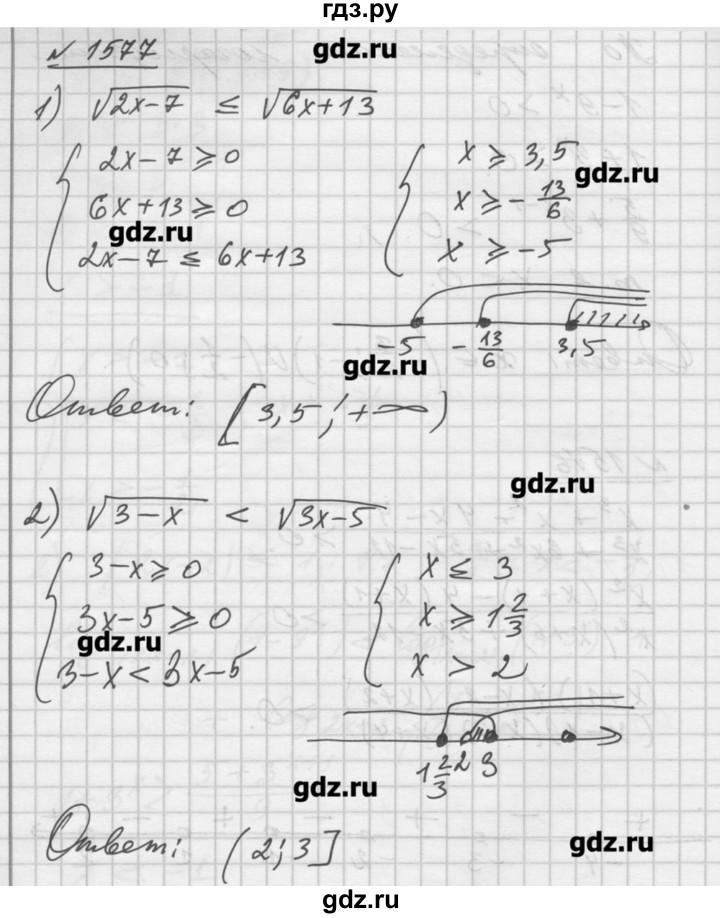 гдз.ру
№ 1577
gdz.ru
1) √(2x-7) ≤ √(6x+13)
{ 2x-7 ⩾ 0
6x+13 ⩾ 0
2x-7 ≤ 6x+13
gdz.ru
{ x ⩾ 3,5
x ⩾ -13/6
x ⩾ -5
gdz.ru
-5 -13/6 3,5
gdz.ru
Ответ: [3,5; +∞)
gdz.ru
2) √(3-x) < √(3x-5)
{ 3-x ⩾ 0
3x-5 ⩾ 0
3-x < 3x-5
gdz.ru
{ x ≤ 3
x ⩾ 1 2/3
x > 2
1 2/3 2 3
gdz.ru
Ответ: (2; 3]
gdz.ru
gdz.ru